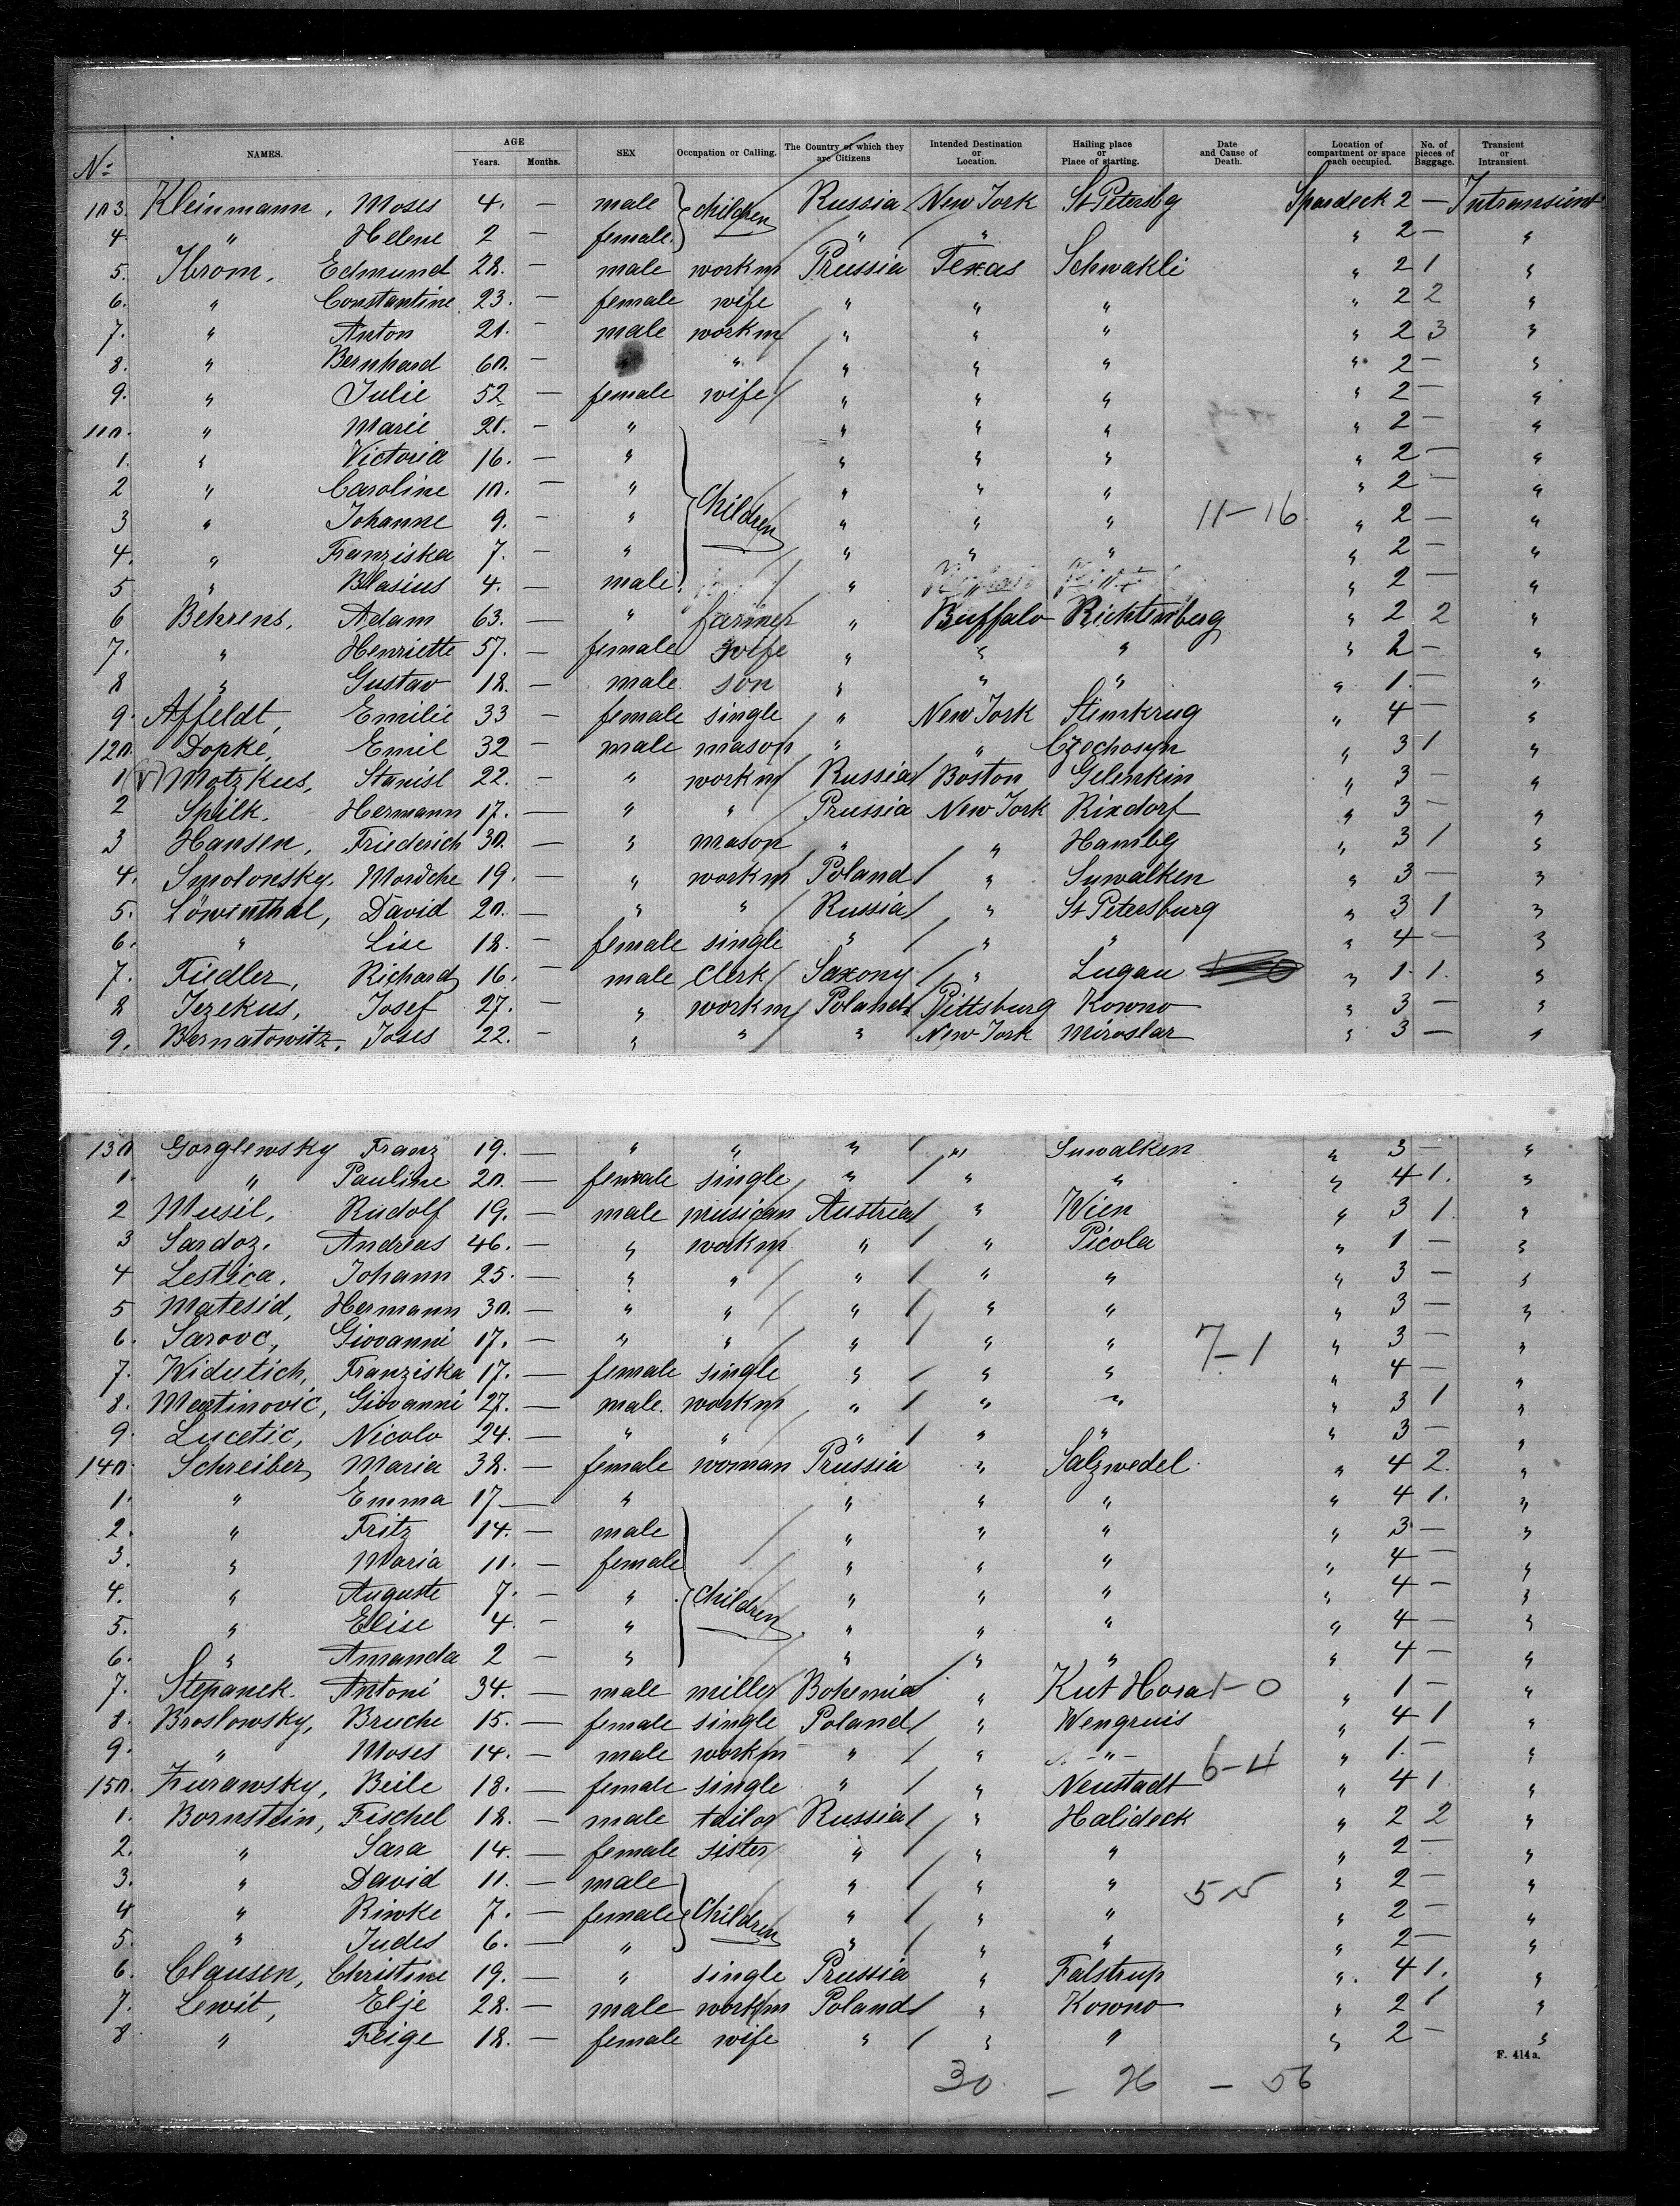 No. NAMES. AGE Years. Months. SEX Occupation or Calling. The Country of which they are Citizens Intended Destination or Location. Hailing place or Place of starting. Date and Cause of Death. Location of compartment or space each occupied. No. of pieces of Baggage. Transient or Intransient.
103. Kleinmann, Moses 4. — male children Russia New York St Petersbg Spardeck 2 — Intransient
4 " Helene 2 — female. " " " 2 — "
5. Ibrom, Edmund 28. — male workm Prussia Texas Schwakli " 2 1 "
6. " Constantine 23. — female wife " " " " 2 2 "
7. " Anton 21. — male workm " " " " 2 3 "
8. " Bernhard 60. — " " " " " 2 — "
9. " Julie 52 — female wife " " " " 2 — "
110. " Marie 21. — " " " " " 2 — "
1. " Victoria 16. — " " " " " 2 — "
2 " Caroline 10. — " " " " " 2 — "
3 " Johanne 9. — " Children " " " 11–16 " 2 — "
4. " Franziska 7. — " " " " " 2 — "
5 " Blasius 4. — male. " " " " 2 — "
6 Behrens, Adam 63. — " farmer " Buffalo Richtenberg " 2 2 "
7. " Henriette 57. — female wife " " " " 2 — "
8 " Gustav 18. — male son " " " " 1. — "
9. Affeldt, Emilie 33 — female single " New York Stimkrug " 4 — "
120. Dopke, Emil 32 — male mason " " Czochosyn " 3 1 "
1 (V) Motzkus, Stanisl 22. — " workm Russia Boston Gelenkin " 3 — "
2 Spilk. Hermann 17. — " " Prussia New York Rixdorf " 3 — "
3 Hansen, Friederich 30. — " mason " " Hambg " 3 1 "
4. Smolonsky. Mordche 19. — " workm Poland " Suwalken " 3 — "
5. Löwenthal, David 20. — " " Russia " St Petersburg " 3 1 "
6. " Lise 18. — female single " " " " 4 — "
7. Fiedler, Richard 16. — male clerk Saxony " Lugau " 1. 1. "
8 Jezekus, Josef 27. — " workm Poland Pittsburg Kowno " 3 — "
9. Bernatowitz, Joses 22. — " " " New York Miroslar " 3 — "
130 Gorglewsky Franz 19. — " " " " Suwalken " 3 — "
1. " Pauline 20. — female single " " " " 4 1. "
2 Musil, Rudolf 19. — male musican Austria " Wien " 3 1 "
3 Sardoz. Andreas 46. — " workm " " Picola " 1 — "
4 Lestica. Johann 25. — " " " " " " 3 — "
5 Matesid, Hermann 30. — " " " " " " 3 — "
6. Sarovc, Giovanni 17. — " " " " " 7–1 " 3 — "
7. Widutich, Franziska 17. — female single " " " " 4 — "
8. Martinovic, Giovanni 27. — male. workm " " " " 3 1 "
9. Lucetic, Nicolo 24. — " " " " " " 3 — "
140. Schreiber, Maria 38. — female woman Prussia " Salzwedel. " 4 2. "
1. " Emma 17 — " " " " " 4 1. "
2. " Fritz 14. — male " " " " 3 — "
3. " Maria 11. — female " " " " 4 — "
4. " Auguste 7. — " Children " " " " 4 — "
5. " Elise 4. — " " " " " 4 — "
6. " Amanda 2 — " " " " " 4 — "
7. Stepanek. Antoni 34. — male miller Bohemia " Kut Hora 1–0 " 1 — "
8. Broslowsky, Bruche 15. — female single Poland " Wengruis " 4 1 "
9. " Moses 14. — male workm " " " " 1. — "
150. Zurawsky, Beile 18. — female single " " Neustadt 6–4 " 4 1. "
1. Bornstein, Fischel 18. — male tailor Russia " Halideck " 2 2 "
2. " Sara 14. — female sister " " " " 2 — "
3. " David 11. — male " " " " 2 — "
4 " Rinke 7. — female Children " " " " 2 — "
5. " Judes 6. — " " " " " 2 — "
6. Clausen, Christine 19. — " single Prussia " Falstrup " 4 1. "
7. Lewit, Elje 28. — male workm Poland " Kowno " 2 1 "
8 " Feige 18. — female wife " " " " 2 — "
F. 414a.
30 – 26 – 56